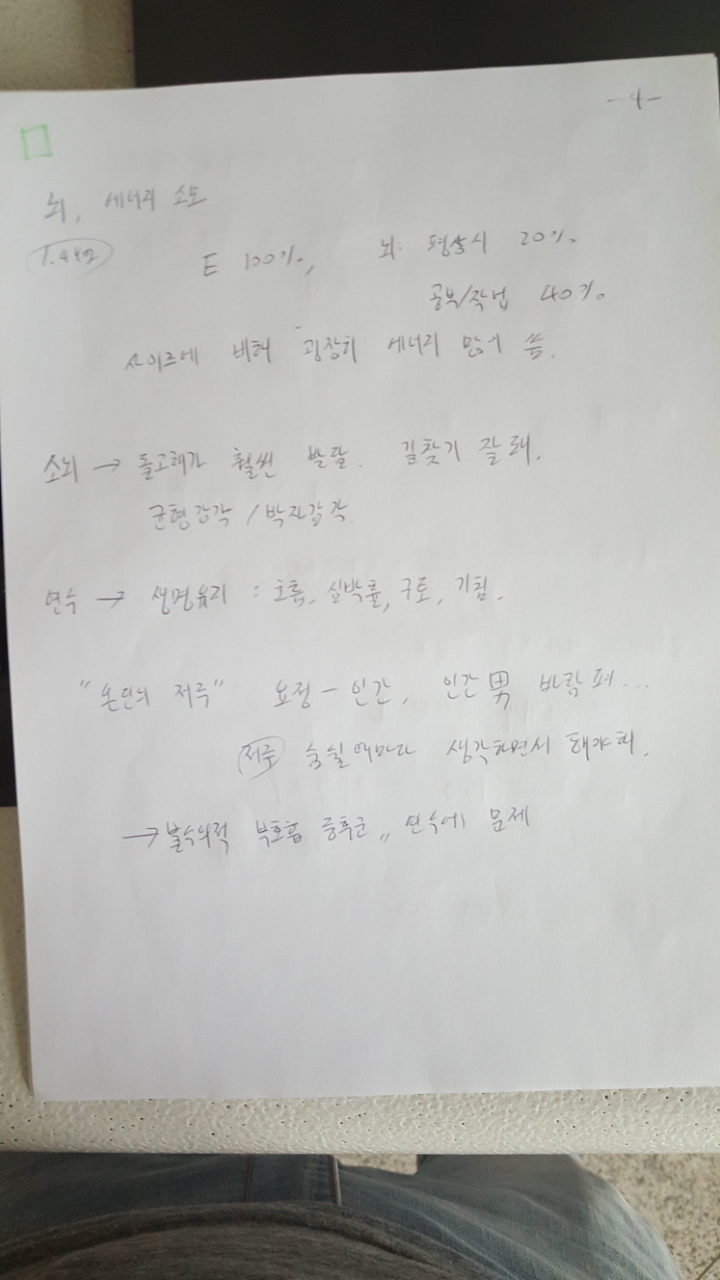 - 4 -
뇌, 에너지 소모
1.4kg
E 100%, 뇌: 평상시 20%
공부/작업 40%
사이즈에 비해 굉장히 에너지 많이 씀.
소뇌 → 돌고래가 훨씬 발달. 길찾기 잘해.
균형감각 / 박자감각.
연수 → 생명유지 : 호흡, 심박률, 구토, 기침.
"온딘의 저주" 요정 - 인간, 인간男 바람펴...
저주 숨쉴때마다 생각하면서 해야해.
→ 불수의적 무호흡 증후군,, 연수에 문제